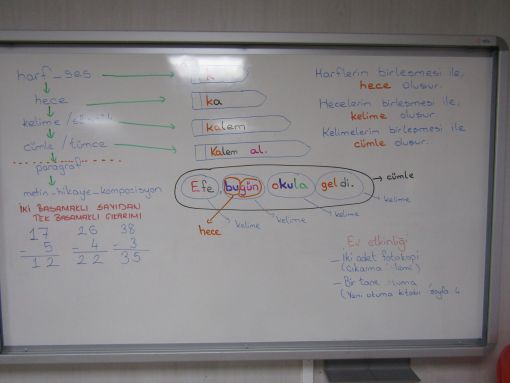 harf_ses
k
hece
ka
kelime /
kalem
cümle / tümce
Kalem al.
paragraf
metin_hikaye_kompozisyon
Harflerin birleşmesi ile,
hece oluşur.
Hecelerin birleşmesi ile,
kelime oluşur
Kelimelerin birleşmesi ile
cümle oluşur.
Efe, bugün okula geldi.
cümle
kelime
kelime
kelime
kelime
hece
İKİ BASAMAKLI SAYIDAN
TEK BASAMAKLI ÇIKARIMI
17 26 38
- 5 - 4 - 3
12 22 35
Ev etkinliği
- İki adet fotokopi
(çıkarma
- Bir tane
(Yeni okuma kitabı sayfa 4